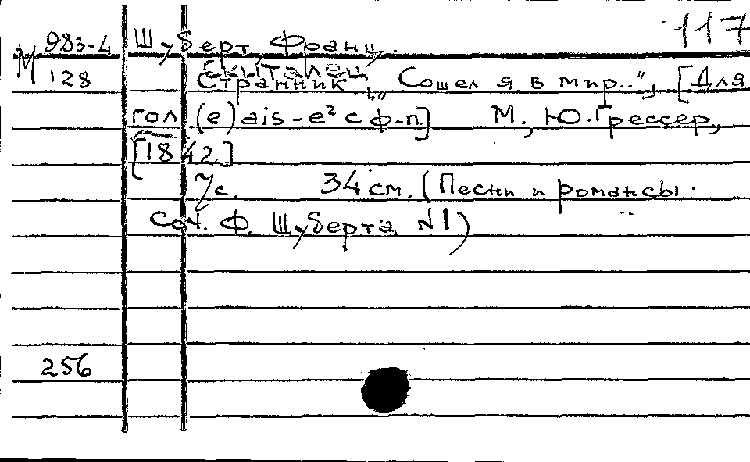 117
М 983-4 Шуберт, Франц.
Скиталец
128 Странник. „Сошел я в мир..", [Для
гол. (e) ais - e² с ф-п] М., Ю. Грессер,
[1842]
7 с. 34 см. (Песни и романсы.
Соч. Ф. Шуберта N1)
256